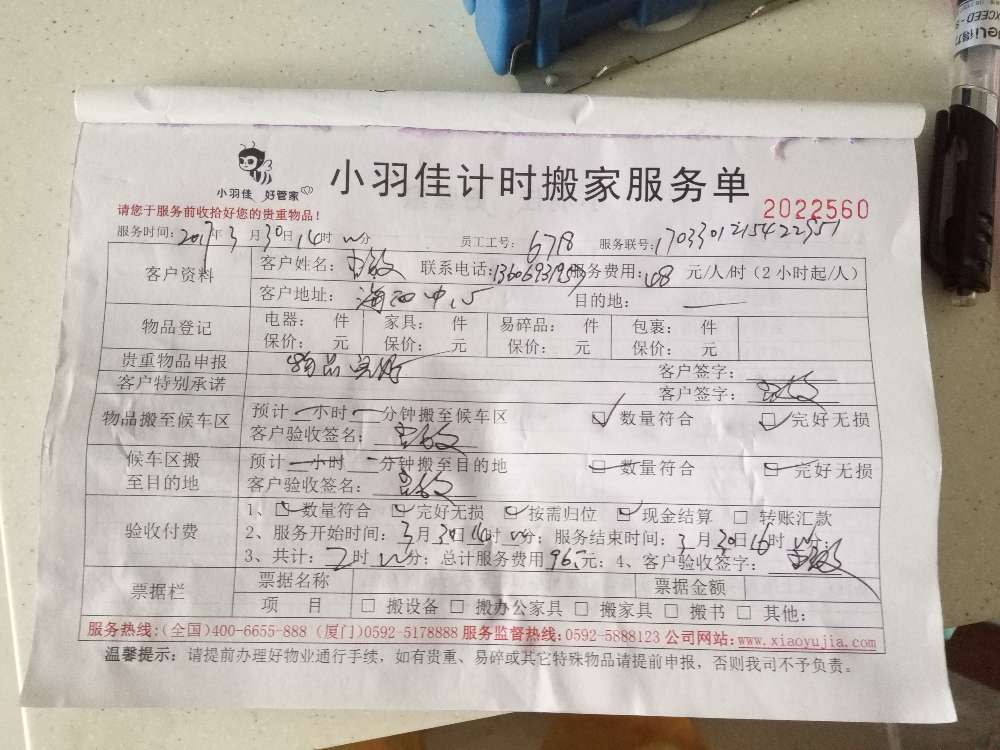 DeLi得力
小羽佳 好管家
小羽佳计时搬家服务单
2022560
请您于服务前收拾好您的贵重物品！
服务时间：2017年3月30日14时 分 员工工号：6718 服务联号：
客户资料 客户姓名： 联系电话： 服务费用：48元/人/时（2小时起/人）
客户地址： 目的地：
物品登记 电器： 件 家具： 件 易碎品： 件 包裹： 件
保价： 元 保价： 元 保价： 元 保价： 元
贵重物品申报 物品完好 客户签字：
客户特别承诺 客户签字：
物品搬至候车区 预计 小时 分钟搬至候车区 数量符合 完好无损
客户验收签名：
候车区搬至目的地 预计 小时 分钟搬至目的地 数量符合 完好无损
客户验收签名：
验收付费 1、数量符合 完好无损 按需归位 现金结算 转账汇款
2、服务开始时间：3月30日14时 分；服务结束时间：3月30日16时 分；
3、共计：2时 分；总计服务费用96元；4、客户验收签字：
票据栏 票据名称 票据金额
项 目 □ 搬设备 □ 搬办公家具 □ 搬家具 □ 搬书 □ 其他：
服务热线:(全国)400-6655-888 (厦门)0592-5178888 服务监督热线:0592-5888123 公司网站:www.xiaoyujia.com
温馨提示：请提前办理好物业通行手续，如有贵重、易碎或其它特殊物品请提前申报，否则我司不予负责。